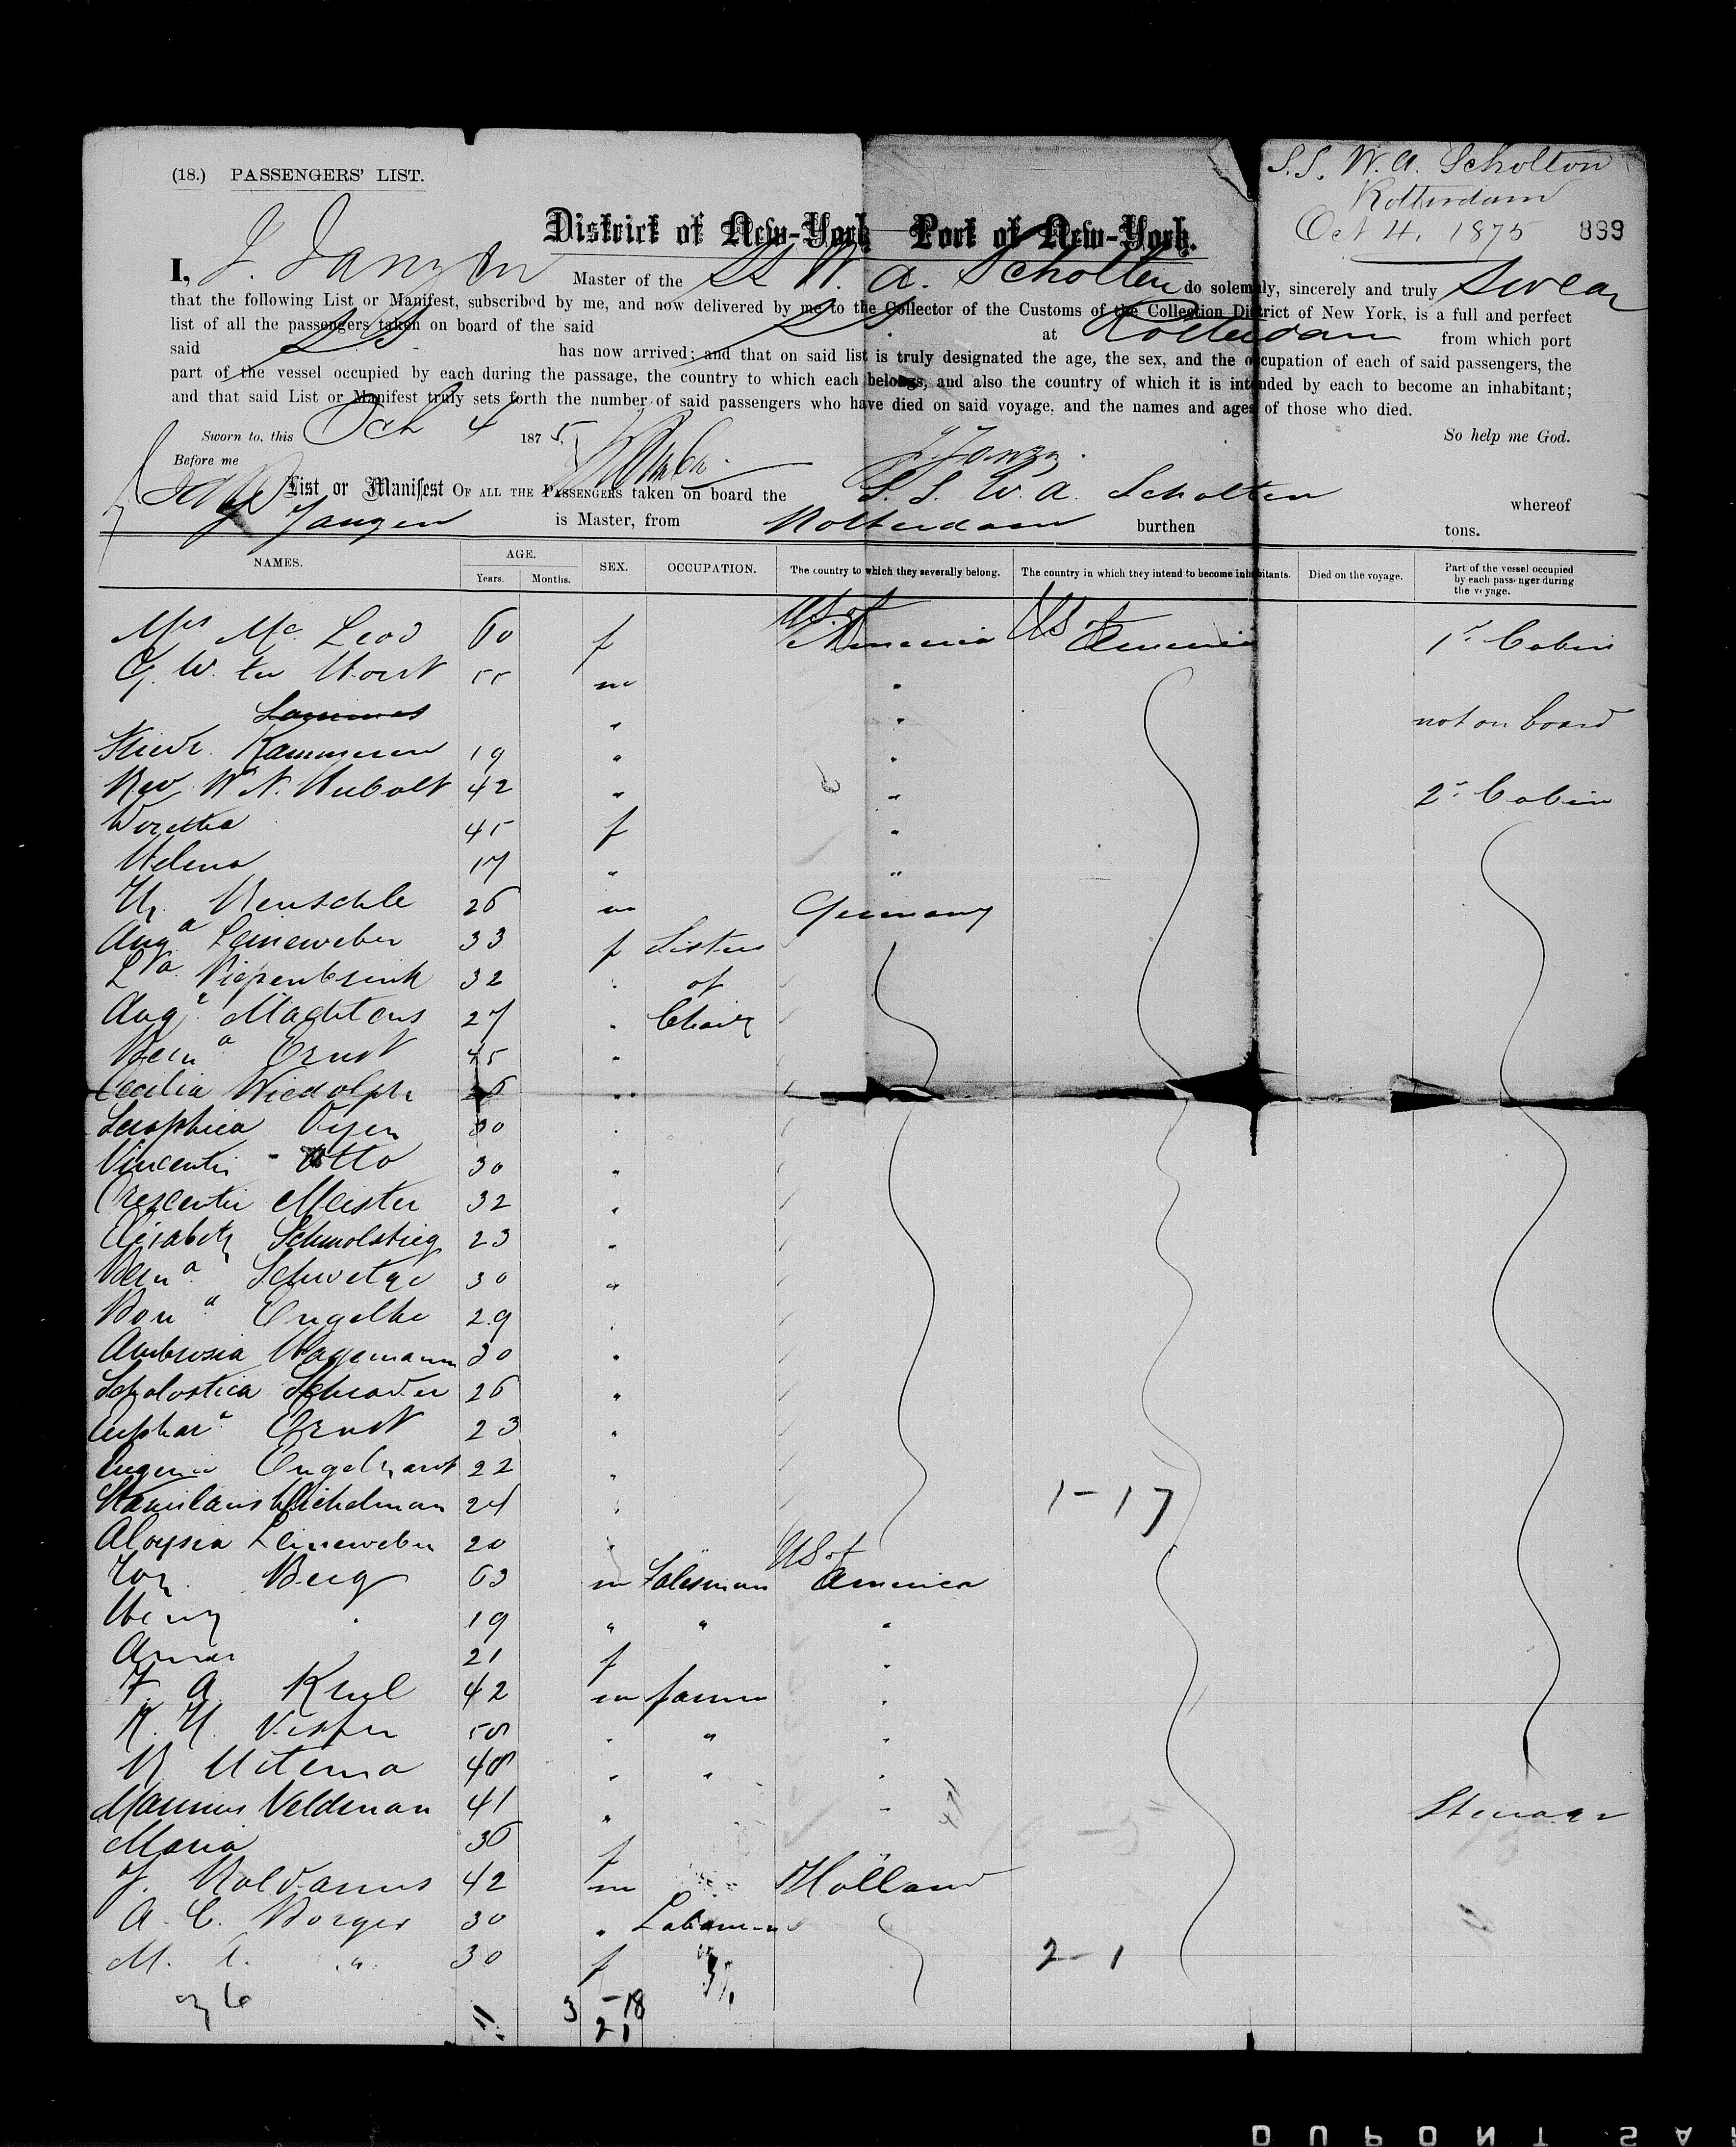 S.S. W.A. Scholton
Rotterdam
Oct 4. 1875 899
(18.) PASSENGERS' LIST.
District of New-York Port of New-York.
I, J. Janzen Master of the SS W. A. Scholten do solemnly, sincerely and truly swear
that the following List or Manifest, subscribed by me, and now delivered by me to the Collector of the Customs of the Collection District of New York, is a full and perfect
list of all the passengers taken on board of the said SS at Rotterdam from which port
said SS has now arrived; and that on said list is truly designated the age, the sex, and the occupation of each of said passengers, the
part of the vessel occupied by each during the passage, the country to which each belongs, and also the country of which it is intended by each to become an inhabitant;
and that said List or Manifest truly sets forth the number of said passengers who have died on said voyage, and the names and ages of those who died.
Sworn to, this Oct 4 1875 So help me God.
Before me J. Janzen
List or Manifest OF ALL THE PASSENGERS taken on board the S. S. W. A. Scholten whereof
J Jangen is Master, from Rotterdam burthen tons.
NAMES. AGE. Years. Months. SEX. OCCUPATION. The country to which they severally belong. The country in which they intend to become inhabitants. Died on the voyage. Part of the vessel occupied by each passenger during the voyage.
Mrs Mc Leod 60 f US. of America US of America 1st Cabin
G. W. ter Horst 55 m "
Lammes " " not on board
Friedr. Kammeren 19 " "
Rev. W. N. Hubolt 42 " " 2d Cabin
Doretha 45 f "
Helena 17 " "
H. Renschle 26 m Germany
Auga Leineweber 33 f Sisters
La. Piepenbrink 32 " of
Auga Machtens 27 " Charity
Berna Ernst 45 "
Cecilia Wiedolph 26 "
Seraphica 30 "
Vincentia Otto 30 "
Crescentia Meister 32 "
Elisabeth Schmolstieg 23 "
Berna Schwetge 30 "
Bona Engelke 29 "
Ambrosia Wagemann 30 "
Scholastica Schrader 26 "
Euphara Ernst 23 "
Eugenia Engelhardt 22 "
Stanislaus Michelman 24 " 1-17
Aloysia Leineweber 20 "
Joh. Berg 63 m Salesman US of America
Henry 19 " " "
Anna 21 f "
F. A. Krul 42 m farmer "
K. H. Visser 58 " " "
R. Uitema 48 " " "
Mannus Veldman 41 " " Steerage
Maria 36 f
J. Noldanus 42 m Holland
A. C. Borger 30 " Labourer
M. C. " 30 f " 2-1
36 3 -18
21
DUPONT SA